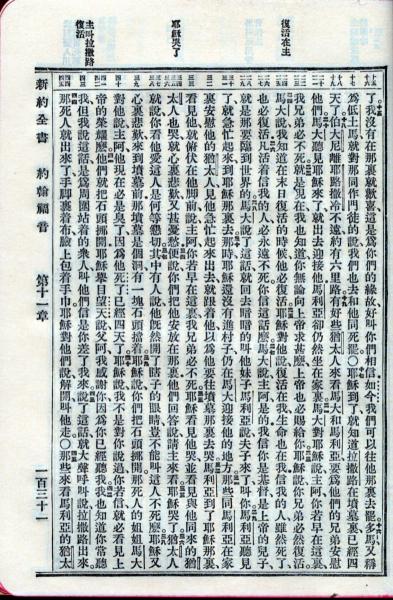 復活在主
耶穌哭了
主叫拉撒路
復活
了我沒有在那裏就歡喜這是爲你們的緣故好叫你們相信如今我們可以往他那裏去罷多馬又稱
爲低土馬就對那同作門徒的說我們也去和他同死罷○耶穌到了就知道拉撒路在墳墓裏已經四
天了伯大尼離耶路撒冷不遠約有六里路有好些猶太人來看馬大和馬利亞要爲他們的兄弟安慰
他們馬大聽見耶穌來了就出去迎接他馬利亞卻仍然坐在家裏馬大對耶穌說主阿你若早在這裏
我兄弟必不死就是現在我也知道你無論向上帝求甚麼上帝也必賜給你耶穌說你兄弟必然復活
馬大說我知道在末日復活的時候他必復活耶穌對他說復活在我生命也在我信我的人雖然死了
也必復活凡活着信我的人必永遠不死你信這話麼馬大說主阿是的我信你是基督是上帝的兒子
就是那要臨到世界的馬大說了這話就回去暗暗的叫他妹子馬利亞說夫子來了叫你馬利亞聽見
了就急忙起來到耶穌那裏去那時耶穌還沒有進村子仍在馬大迎接他的地方那些同馬利亞在家
裏安慰他的猶太人見他急忙起來出去就跟着他以爲他要往墳墓那裏去哭馬利亞到了耶穌那裏
看見他就俯伏在他脚前說主阿你若早在這裏我兄弟必不死耶穌看見他哭並看見與他同來的猶
太人也哭就心裏悲歎又甚憂愁便說你們把他安放在那裏他們回答說請主來看耶穌哭了猶太人
就說你看他愛這人是何等懇切其中有人說他旣然開了瞎子的眼睛豈不能叫這人不死麼耶穌又
心裏悲歎來到墳墓前那墳墓是個洞有一塊石頭擋着耶穌說你們把石頭挪開那死人的姐姐馬大
對他說主阿他現在必是臭了因爲他死了已經四天了耶穌說我不是對你說過你若信就必看見上
帝的榮耀麼他們就把石頭挪開耶穌舉目望天說父阿我感謝你因爲你已經聽我我也知道你常聽
我但我說這話是爲周圍站着的衆人叫他們信是你差了我來說了這話就大聲呼叫說拉撒路出來
那死人就出來了手脚裹着布臉上包着手巾耶穌對他們說解開叫他走○那些來看馬利亞的猶太
新約全書 約翰福音 第十一章 一百三十一